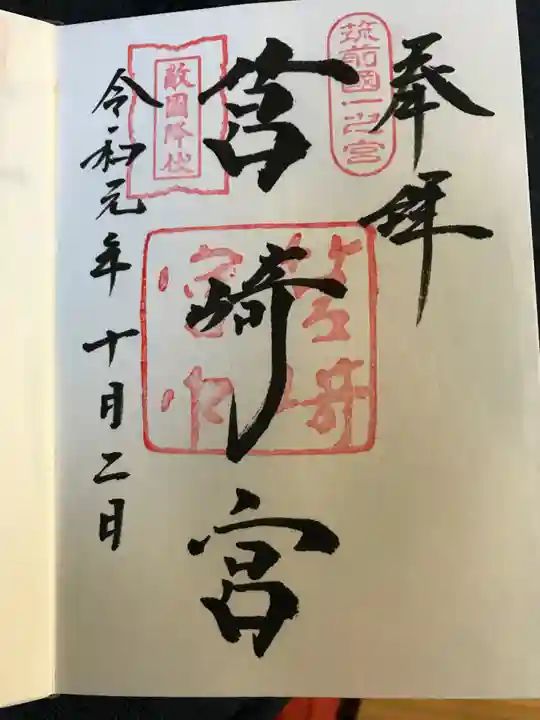 奉拝
筑前國一之宮
筥崎宮
敵國降伏
令和元年十月二日